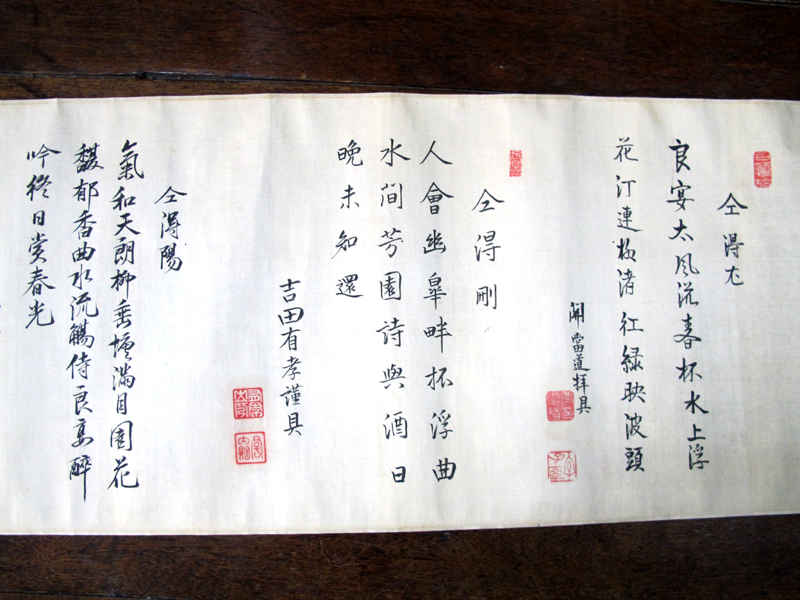 仝淂尤
良宴太風流春杯水上浮
花汀連柳渚紅緑映波頭
關當道拜具
仝淂刪
人會幽皐畔杯浮曲
水間芳園詩與酒日
晚未知還
吉田有孝謹具
仝淂陽
氣和天朗柳垂塘滿目園花
馥郁香曲水流觴侍良宴醉
吟終日賞春光